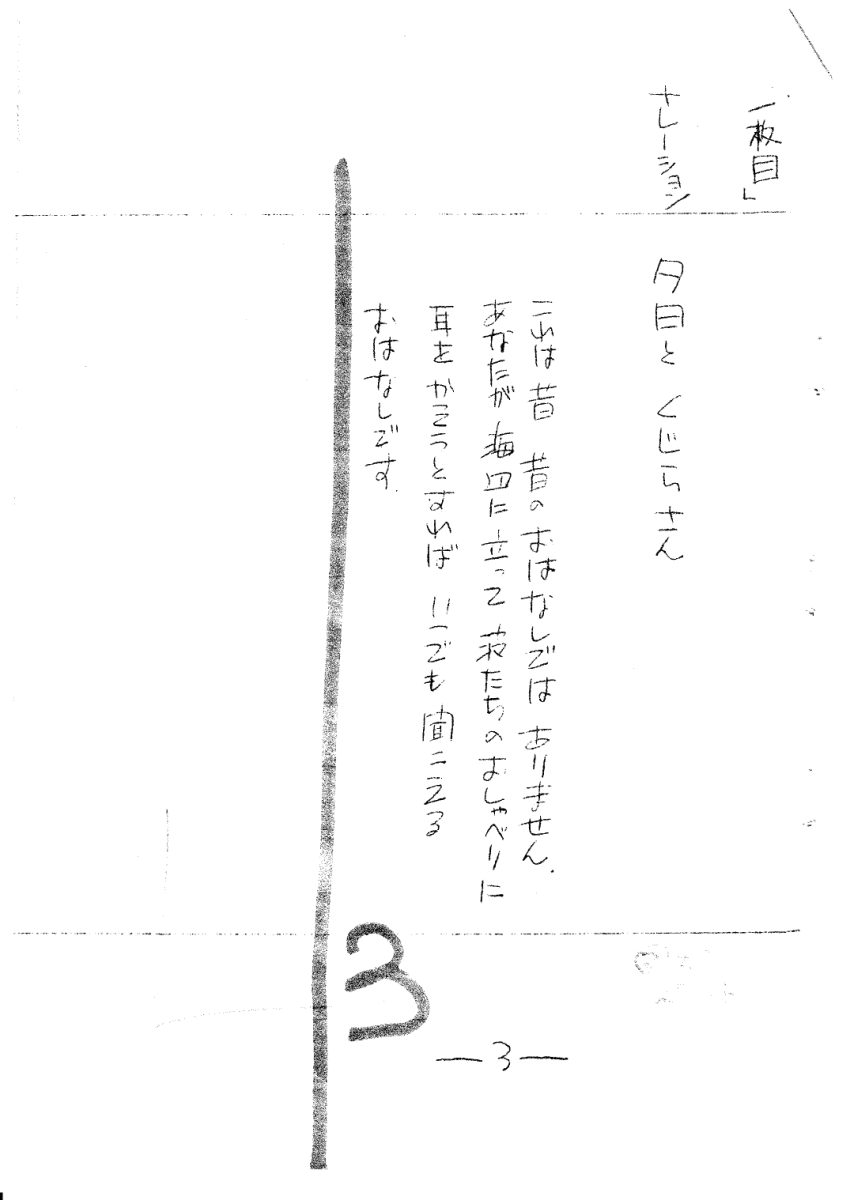 「一枚目」
ナレーション　夕日と くじらさん
これは昔 昔の おはなしでは ありません.
あなたが 海辺に 立って 波たちの おしゃべりに
耳を かそうとすれば いつでも 聞こえる
おはなしです.
3
―3―